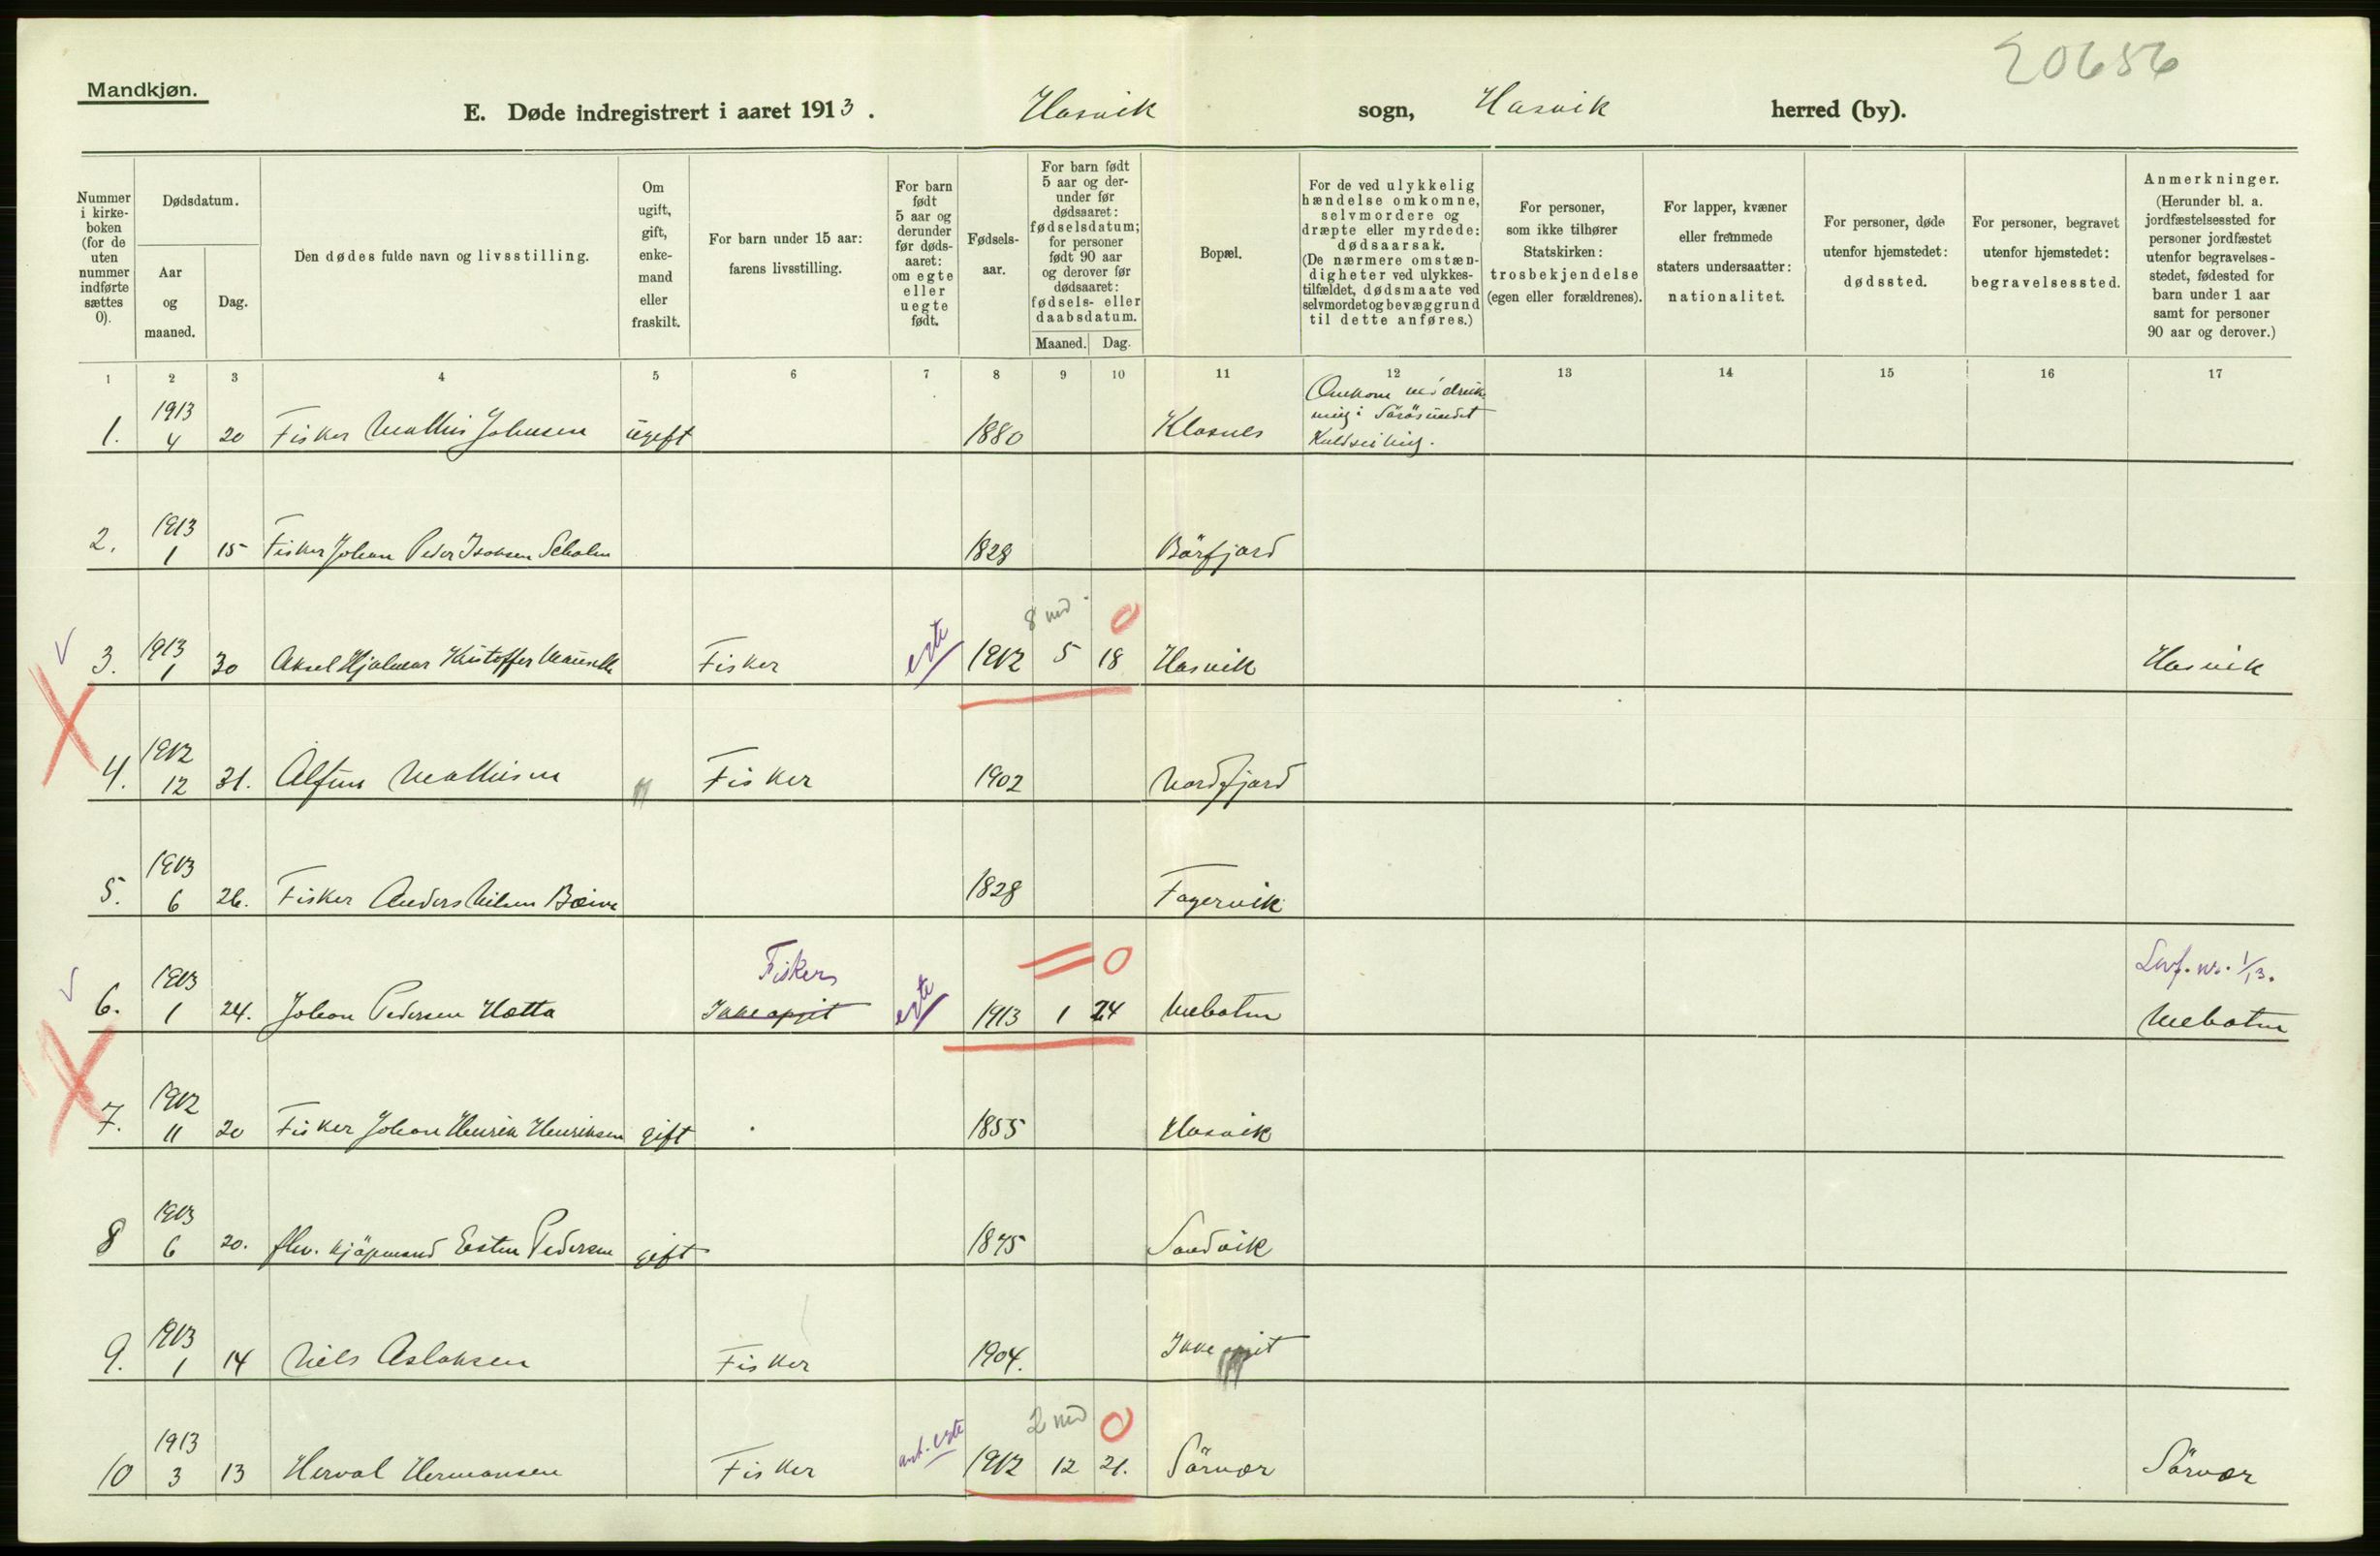 20656
Mandkjøn.
E. Døde indregistrert i aaret 1913. Hasvik sogn, Hasvik herred (by).
Nummer i kirke-boken (for de uten nummer indførte sættes 0).
Dødsdatum.
Aar og maaned.
Dag.
Den dødes fulde navn og livsstilling.
Om ugift, gift, enke-mand eller fraskilt.
For barn under 15 aar: farens livsstilling.
For barn født 5 aar og derunder før døds-aaret: om egte eller uegte født.
Fødsels-aar.
For barn født 5 aar og der-under før dødsaaret: fødselsdatum; for personer født 90 aar og derover før dødsaaret: fødsels- eller daabsdatum.
Maaned. Dag.
Bopæl.
For de ved ulykkelig hændelse omkomne, selvmordere og dræpte eller myrdede: dødsaarsak. (De nærmere omstæn-digheter ved ulykkes-tilfældet, dødsmaate ved selvmordet og bevæggrund til dette anføres.)
For personer, som ikke tilhører Statskirken: trosbekjendelse (egen eller forældrenes).
For lapper, kvæner eller fremmede staters undersaatter: nationalitet.
For personer, døde utenfor hjemstedet: dødssted.
For personer, begravet utenfor hjemstedet: begravelsessted.
Anmerkninger. (Herunder bl. a. jordfæstelsessted for personer jordfæstet utenfor begravelses-stedet, fødested for barn under 1 aar samt for personer 90 aar og derover.)
1 2 3 4 5 6 7 8 9 10 11 12 13 14 15 16 17
1. 1913 4 20 Fisker Mathis Johnsen ugift 1880 Omkom ved druk-
ning i Sörösundet
2. 1913 1 15 Fisker Johan Peder Isaksen 1828 Börfjord
8 md. 0
3. 1913 1 30 Aksel Hjalmar Kristoffer Fisker egte 1912 5 18 Hasvik Hasvik
4. 1912 12 31. Alfins Mathisen Fisker 1902 Nordfjord
5. 1913 6 26. Fisker Anders Nilsen 1828 Fagervik
Fiskers 0 Levf. nr. 1/13.
6. 1913 1 24. Johan Pedersen Hætta Ikke opgit egte 1913 1 24 Mebotn Mebotn
7. 1912 11 20 Fisker Johan Henrik Henriksen gift 1855 Hasvik
8 1913 6 20. fhv. kjöpmand Esten Pedersen gift 1845 Sandvik
9. 1913 1 14 Niels Aslaksen Fisker 1904. Ikke opgit
2 md 0
10 1913 3 13 Herval Hermansen Fisker ant. egte 1912 12 21. Sörvær Sörvær